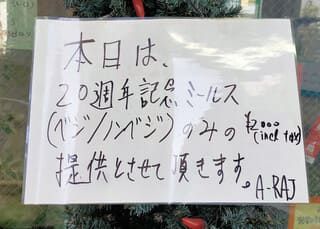 本日は、
20周年記念ミールス
(ベジ/ノンベジ)のみの ¥2000 (incl tax)
提供とさせて頂きます。
A-RAJ